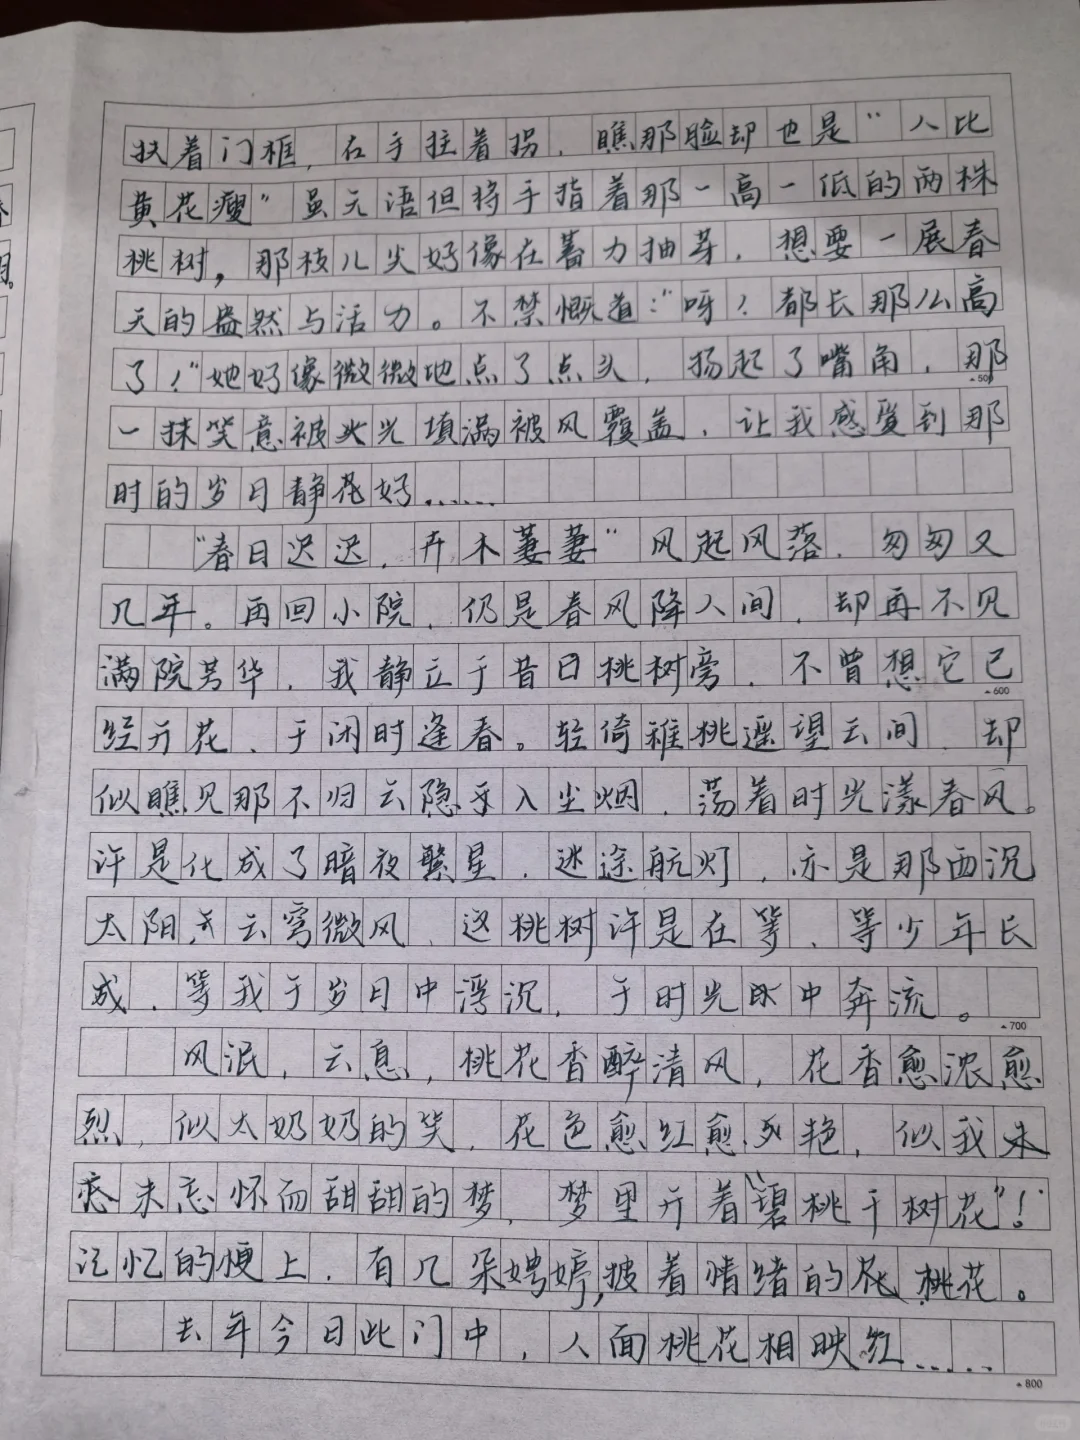 扶着门框，右手拄着拐，瞧那脸却也是“人比
黄花瘦”虽无语但将手指着那一高一低的两株
桃树，那枝儿尖好像在蓄力抽芽，想要一展春
天的盎然与活力。不禁慨道：“呀！都长那么高
了！”她好像微微地点了点头，扬起了嘴角，那
500
一抹笑意被火光填满被风覆盖，让我感受到那
时的岁月静花好……
“春日迟迟，卉木萋萋”风起风落，匆匆又
几年。再回小院，仍是春风降人间，却再不见
满院芳华，我静立于昔日桃树旁，不曾想它已
600
经开花、于闲时逢春。轻倚稚桃遥望云间，却
似瞧见那不归云隐乎入尘烟，荡着时光漾春风。
许是化成了暗夜繁星，迷途航灯，亦是那西沉
太阳，云穹微风，这桃树许是在等，等少年长
成，等我于岁月中浮沉，于时光中奔流。
700
风泯，云息，桃花香醉清风，花香愈浓愈
烈，似太奶奶的笑，花色愈红愈艳，似我未
忘怀而甜甜的梦，梦里开着“碧桃千树花”！
记忆的梗上，有几朵娉婷，披着情绪的花，桃花。
去年今日此门中，人面桃花相映红……
800